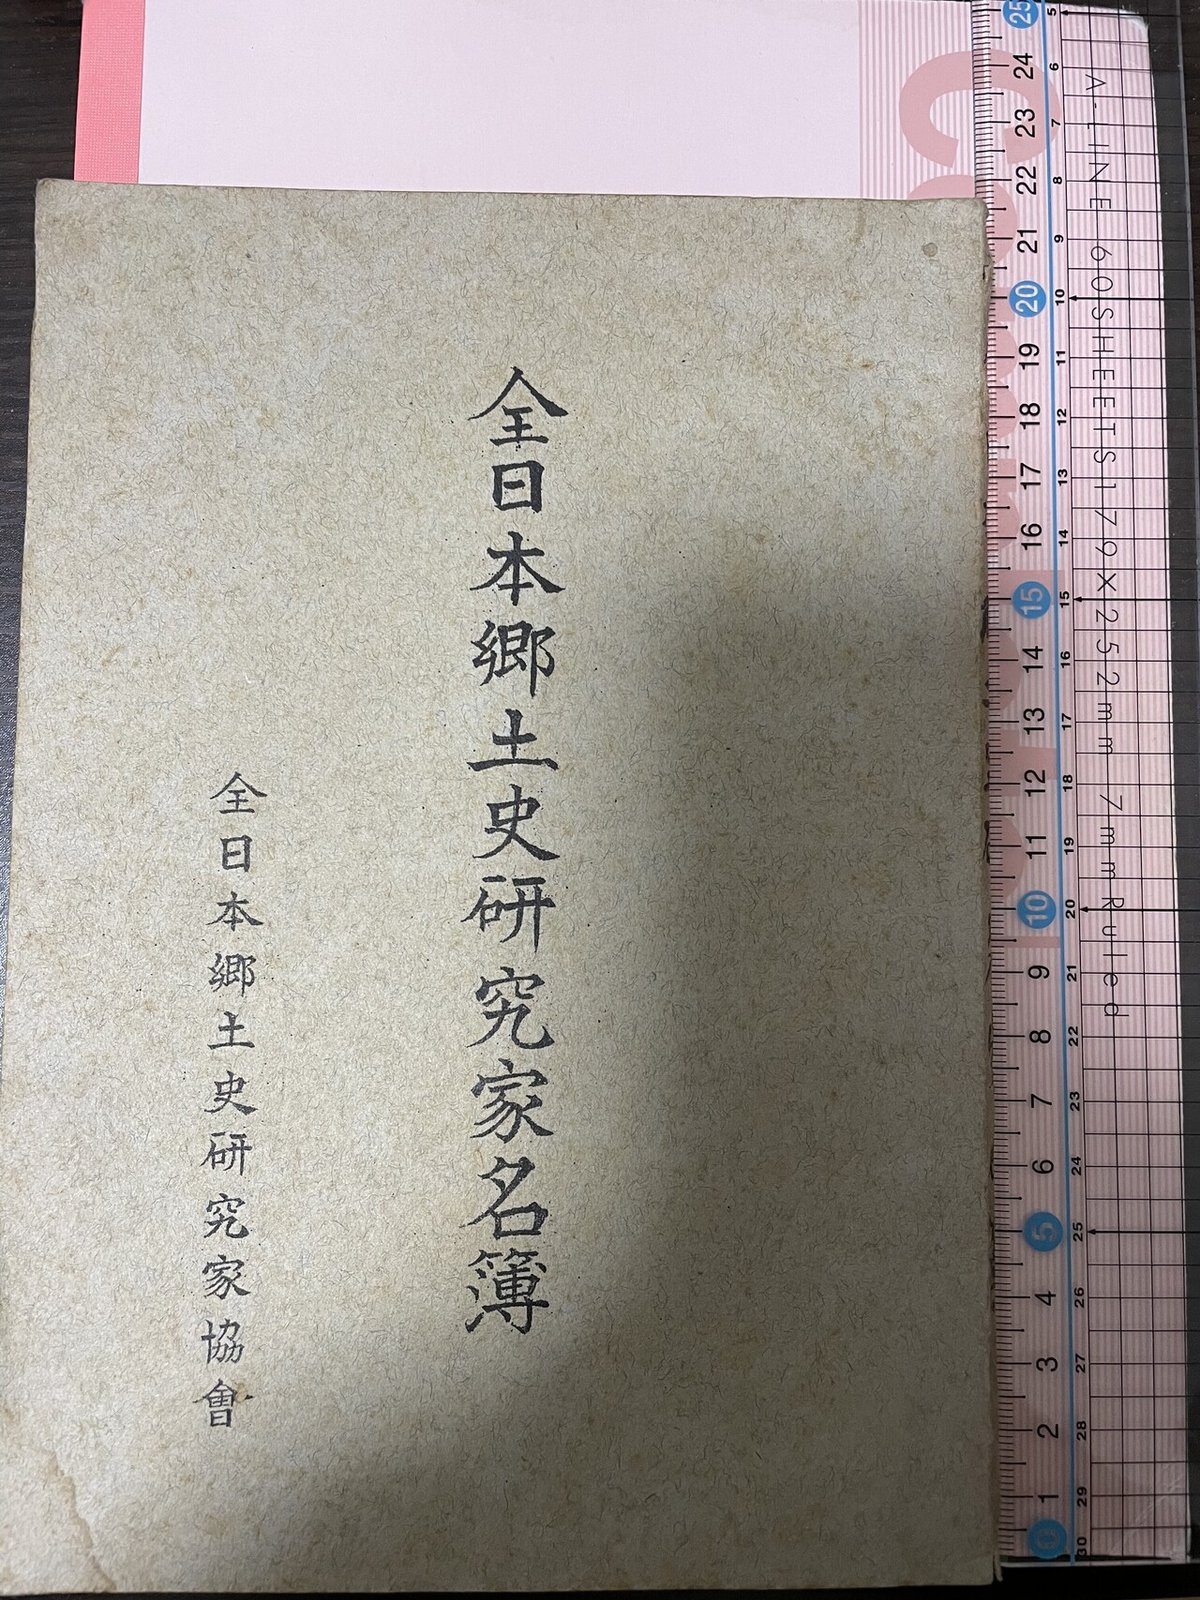 全日本郷土史研究家名簿
全日本郷土史研究家協會
A-LINE 60SHEETS 179×252mm 7mm Ruled
25 24 23 22 21 20 19 18 17 16 15 14 13 12 11 10 9 8 7 6 5 4 3 2 1 0
5 6 7 8 9 10 11 12 13 14 15 16 17 18 19 20 21 22 23 24 25 26 27 28 29 30